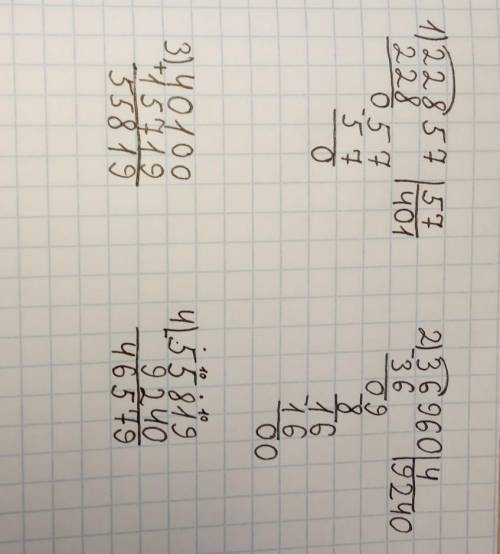 1) 22857 | 57
228 | 401
0-57
57
0
2) -36960 | 4
36 | 9240
09
8
-16
16
00
3) 40100
+15719
55819
4) 10 10
-55819
9240
46579